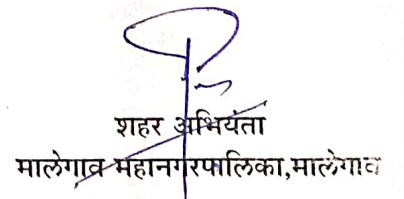 शहर अभियंता
मालेगाव महानगरपालिका,मालेगाव